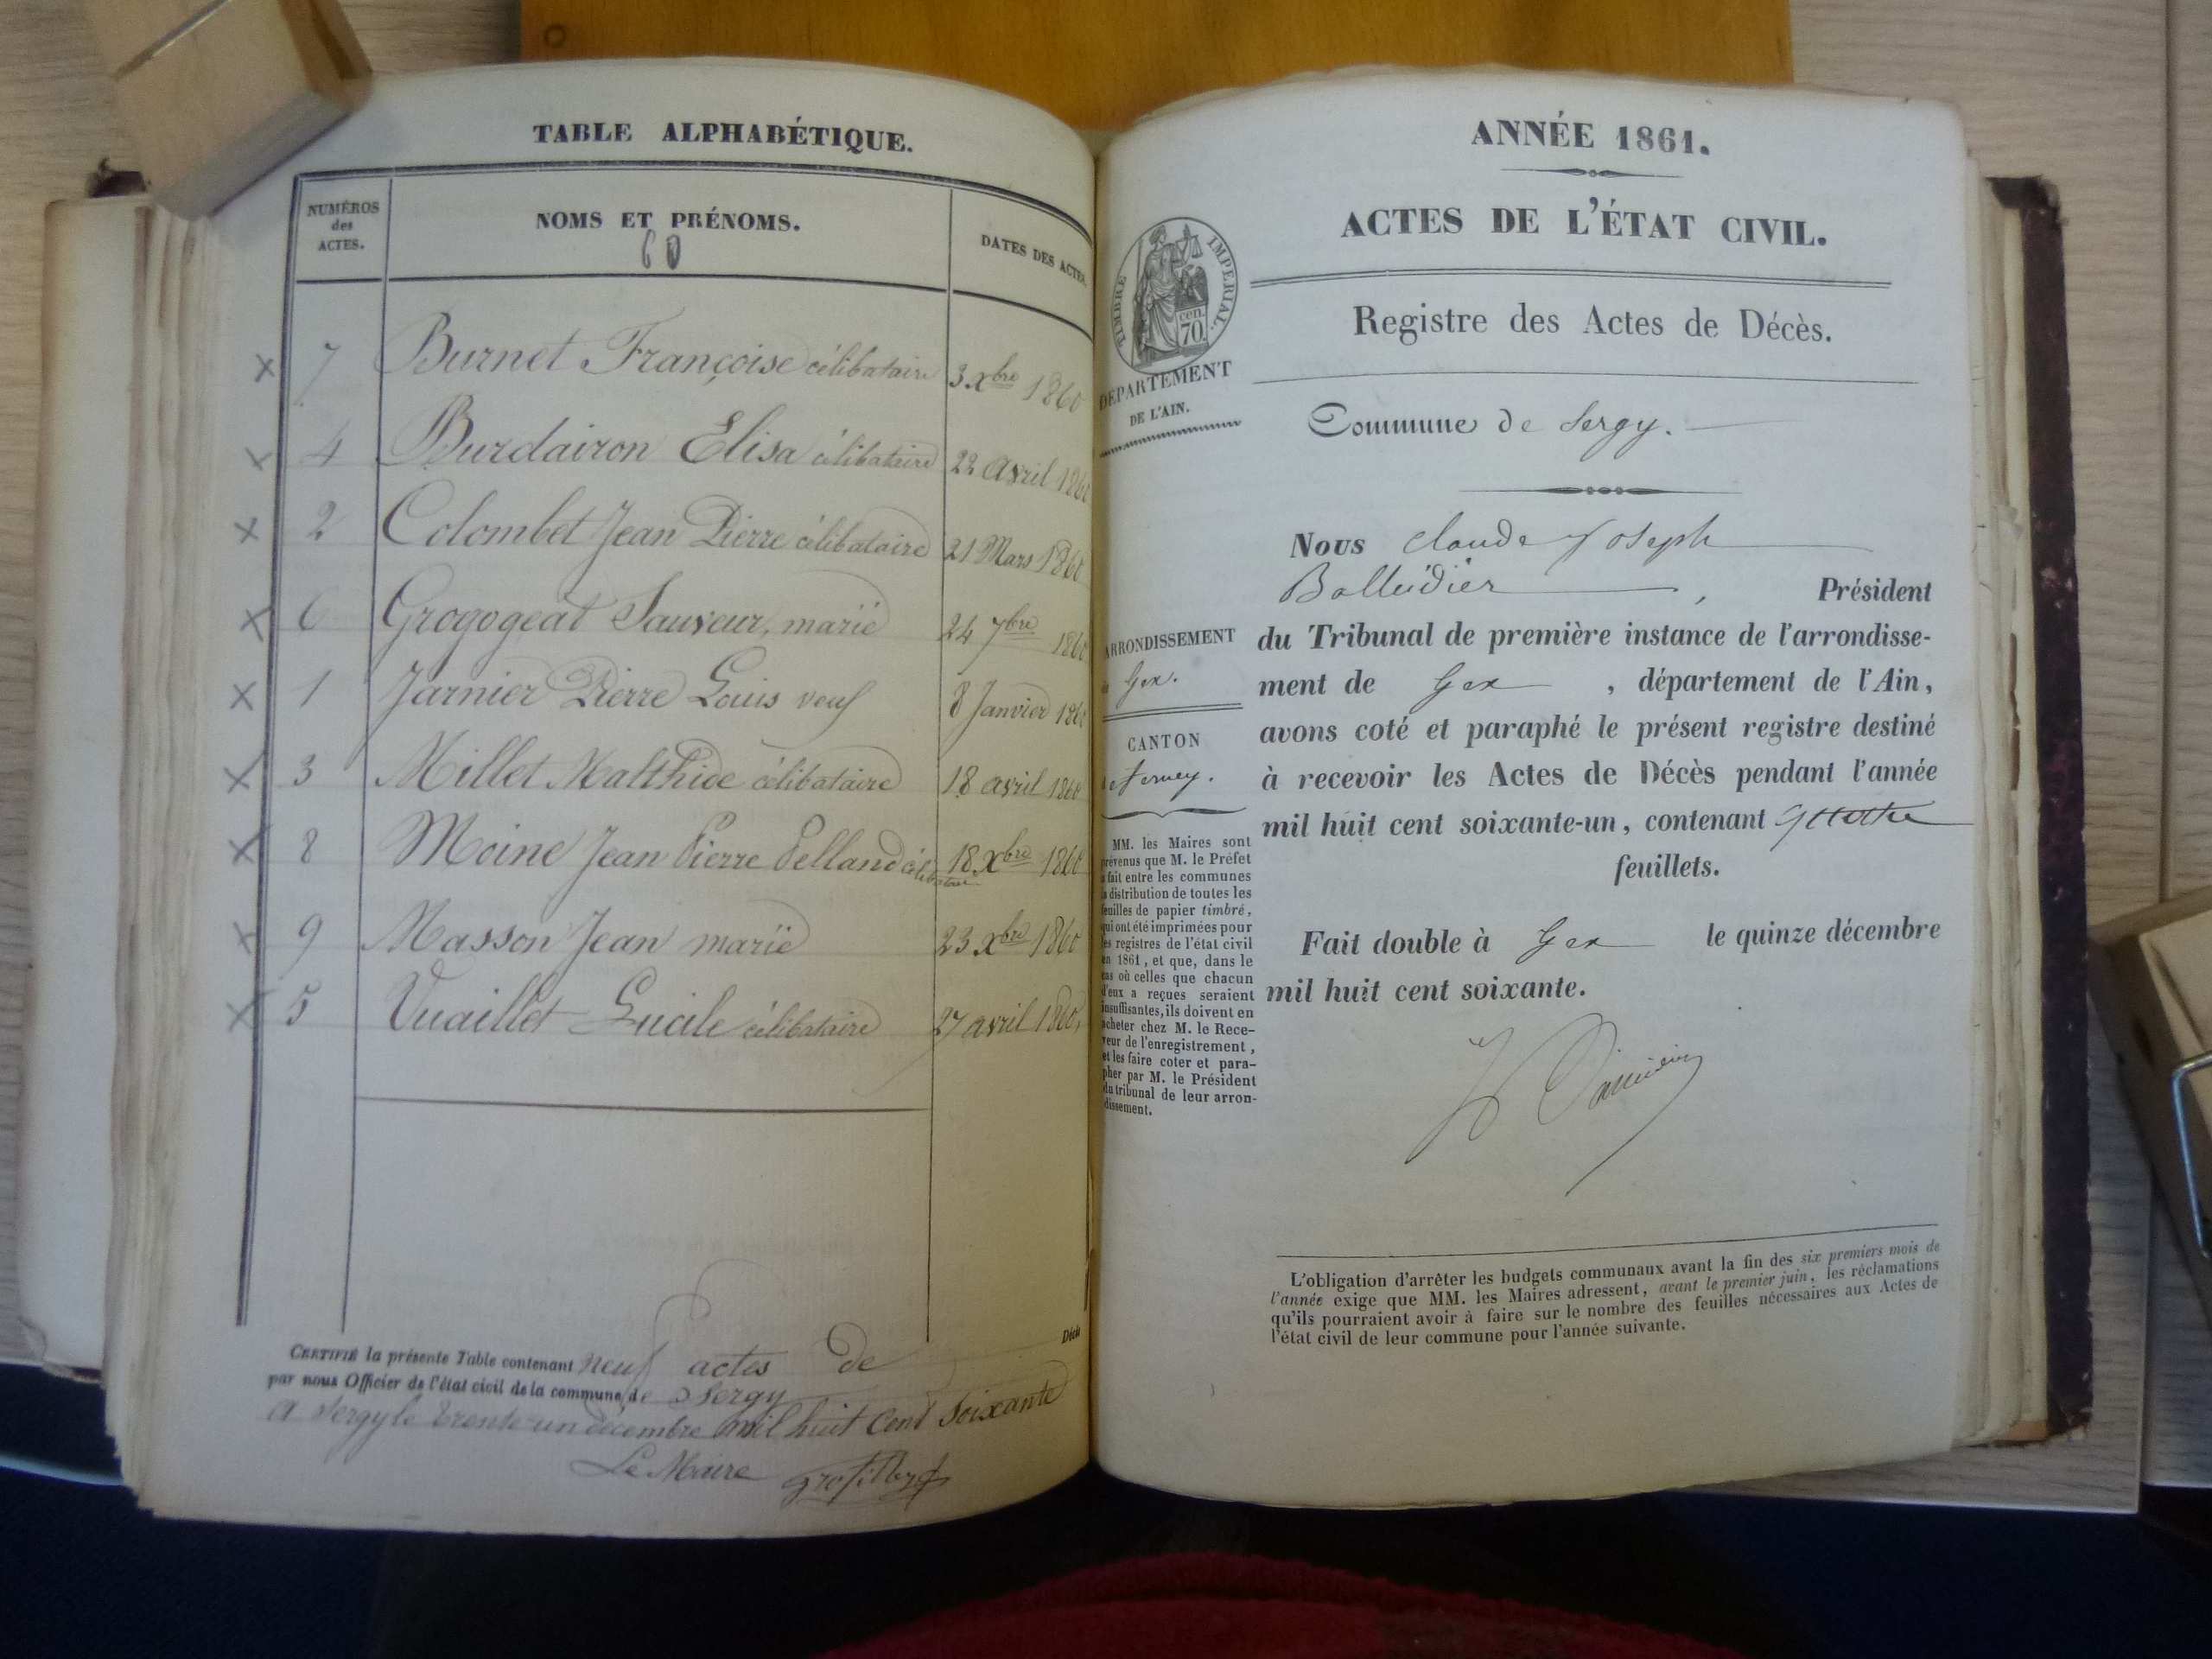 TABLE ALPHABÉTIQUE.
NUMÉROS
des
ACTES.
NOMS ET PRÉNOMS.
60
DATES DES ACTES.
7 Burnet Françoise célibataire 3 Xbre 1860
4 Burdairon Elisa célibataire 22 avril 1860
2 Colombet Jean Pierre célibataire 21 Mars 1860
6 Grogogeat Sauveur, marié 24 7bre 1860
1 Jarnier Pierre Louis veuf 8 Janvier 1860
3 Millet Malthide célibataire 18 avril 1860
8 Moine Jean Pierre Pelland célibataire 18 Xbre 1860
9 Masson Jean marié 23 Xbre 1860
5 Vuaillet Lucile célibataire 27 avril 1860,
CERTIFIÉ la présente Table contenant neuf actes de Décès
par nous Officier de l'état civil de la commune de Sergy
A Sergy le trente-un décembre mil huit Cent Soixante
Le Maire
ANNÉE 1861.
ACTES DE L'ÉTAT CIVIL.
TIMBRE IMPÉRIAL.
cen.
70
DÉPARTEMENT
DE L'AIN.
Registre des Actes de Décès.
Commune de Sergy.
ARRONDISSEMENT
Gex.
CANTON
de Ferney.
MM. les Maires sont
prévenus que M. le Préfet
a fait entre les communes
la distribution de toutes les
feuilles de papier timbré,
qui ont été imprimées pour
les registres de l'état civil
en 1861, et que, dans le
cas où celles que chacun
d'eux a reçues seraient
insuffisantes, ils doivent en
acheter chez M. le Rece-
veur de l'enregistrement,
et les faire coter et para-
pher par M. le Président
du tribunal de leur arron-
dissement.
Nous Claude Joseph
Balleidier, Président
du Tribunal de première instance de l'arrondisse-
ment de Gex, département de l'Ain,
avons coté et paraphé le présent registre destiné
à recevoir les Actes de Décès pendant l'année
mil huit cent soixante-un, contenant
feuillets.
Fait double à Gex le quinze décembre
mil huit cent soixante.
L'obligation d'arrêter les budgets communaux avant la fin des six premiers mois de
l'année exige que MM. les Maires adressent, avant le premier juin, les réclamations
qu'ils pourraient avoir à faire sur le nombre des feuilles nécessaires aux Actes de
l'état civil de leur commune pour l'année suivante.